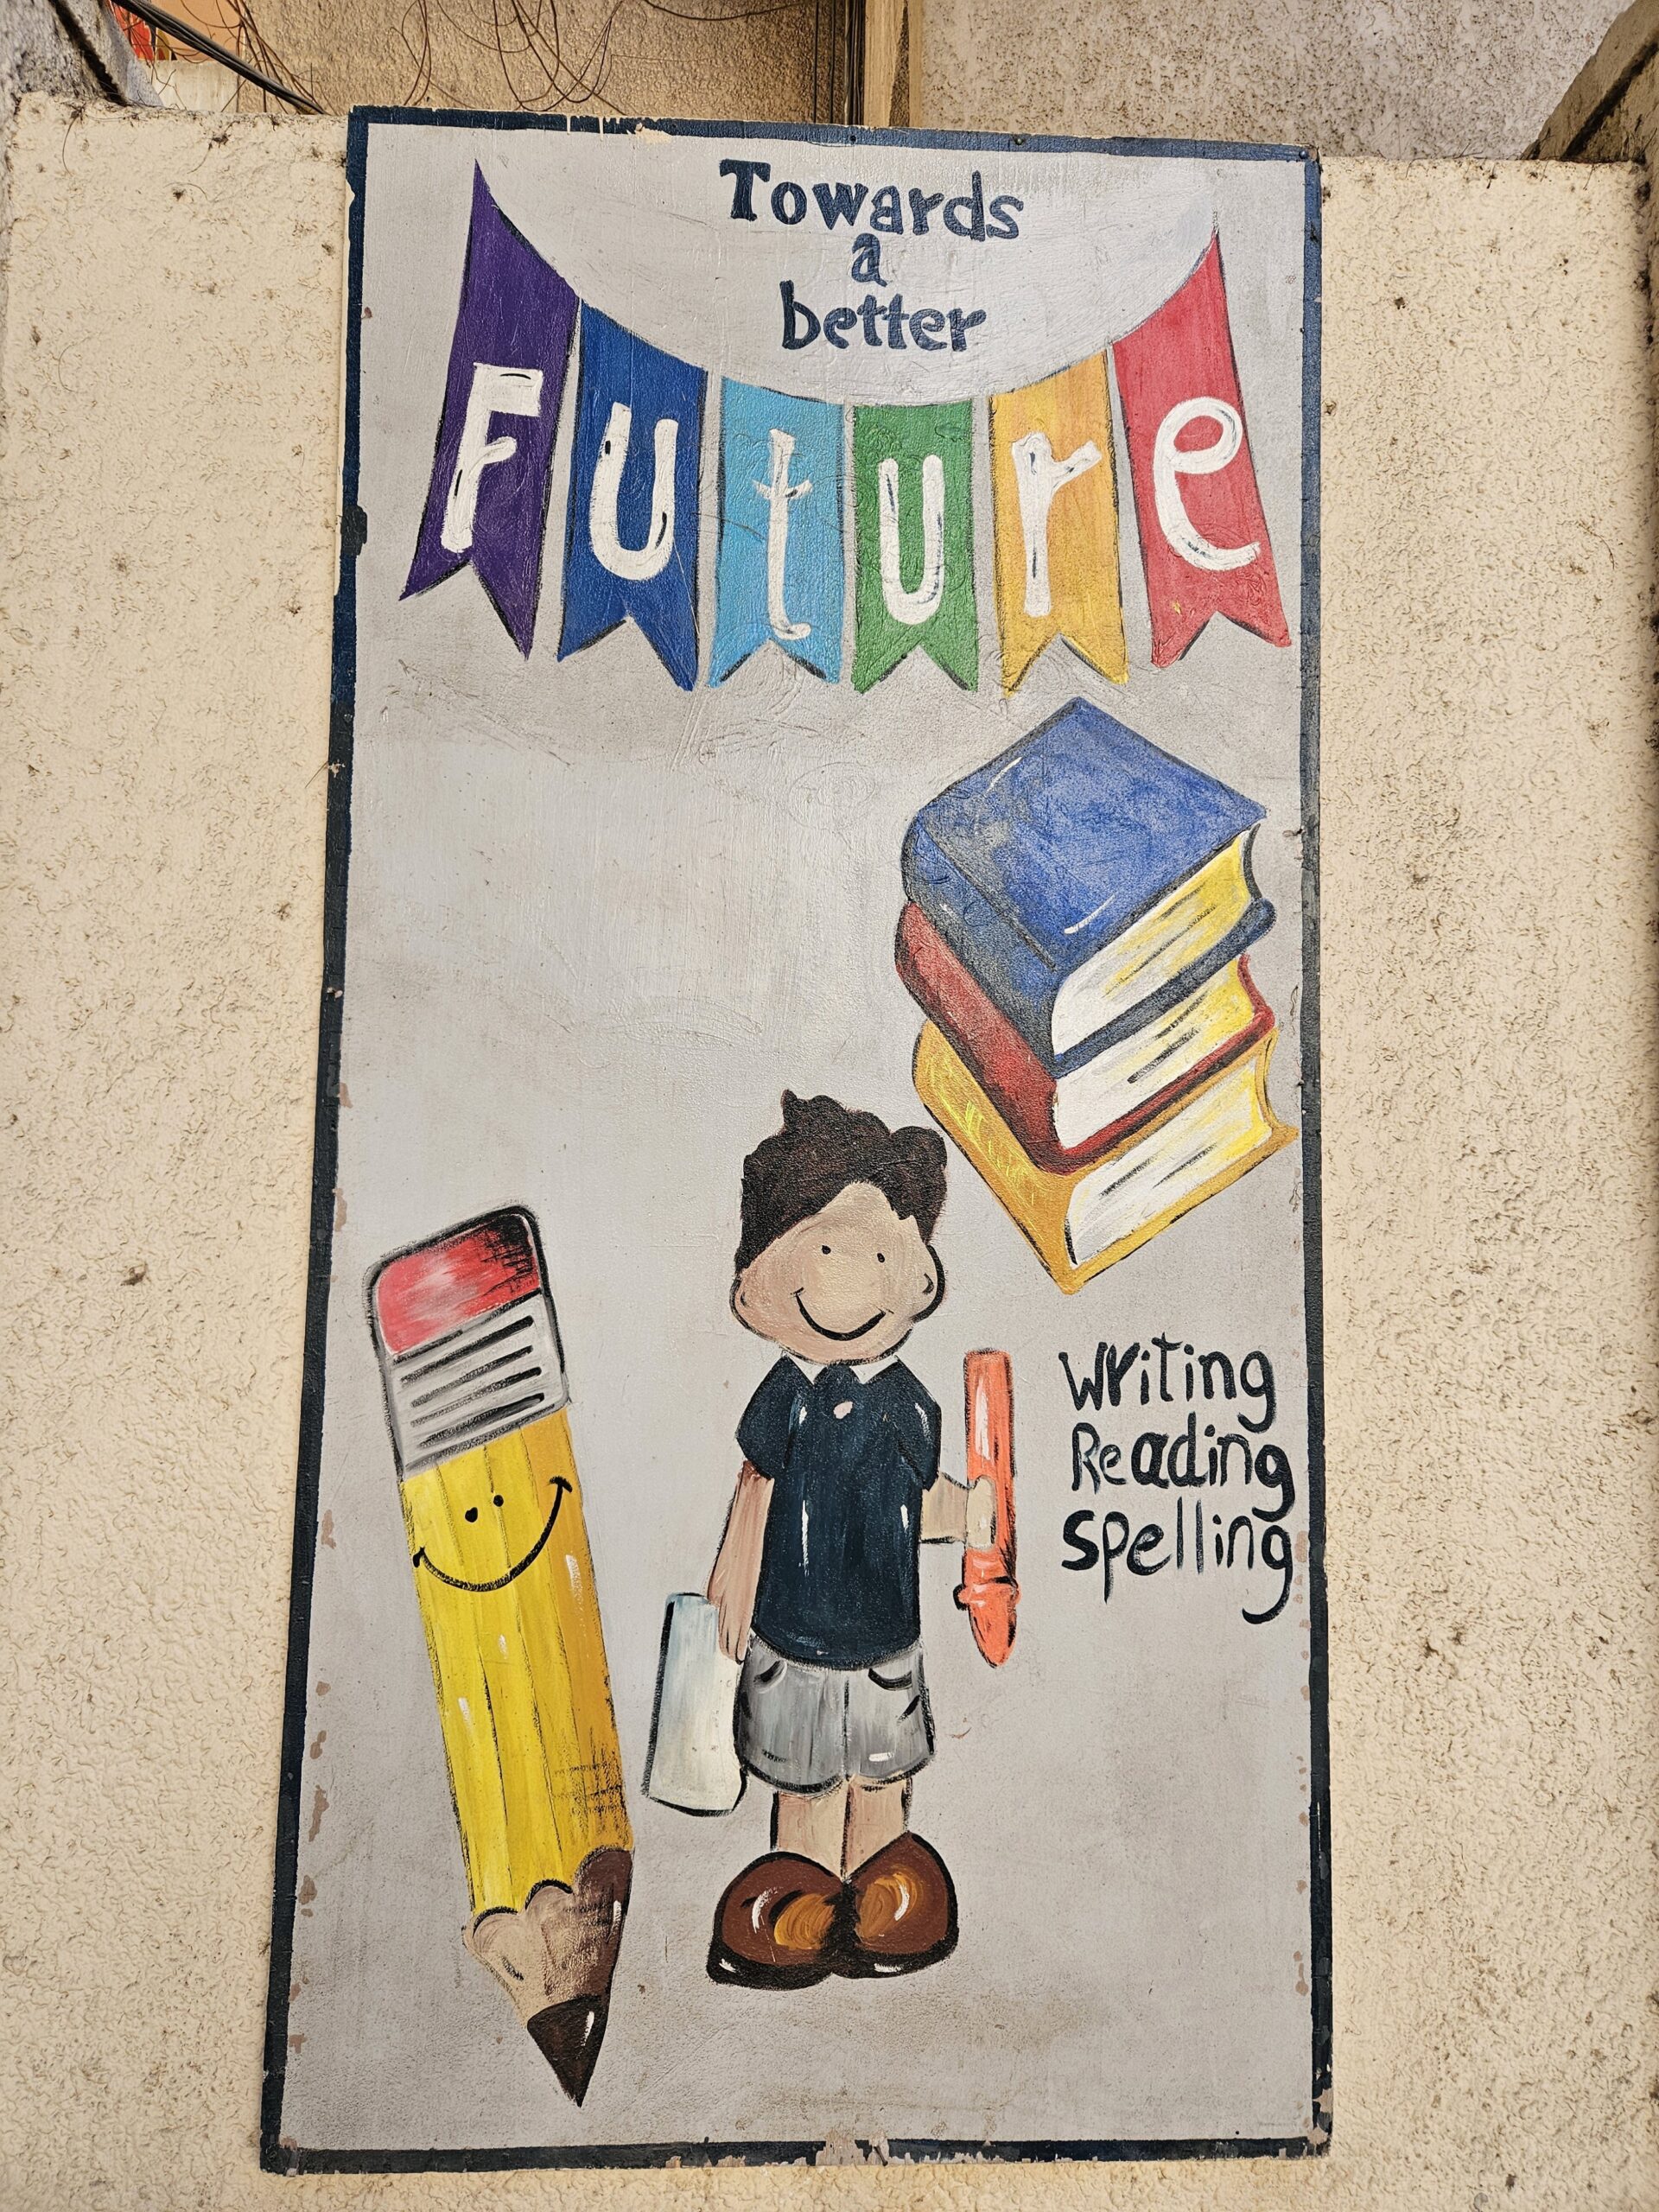 Towards
a
better
Future
Writing
Reading
Spelling